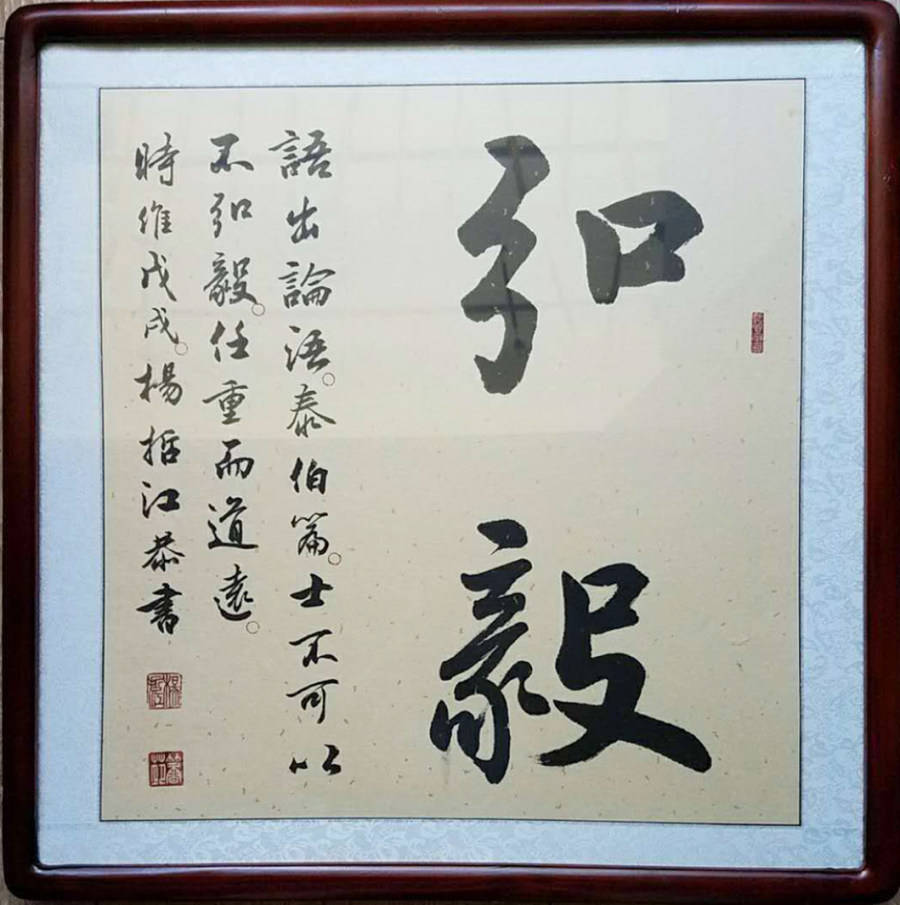 弘毅
語出論語。泰伯篇。士不可以
不弘毅。任重而道遠。
時維戊戌。楊哲江恭書